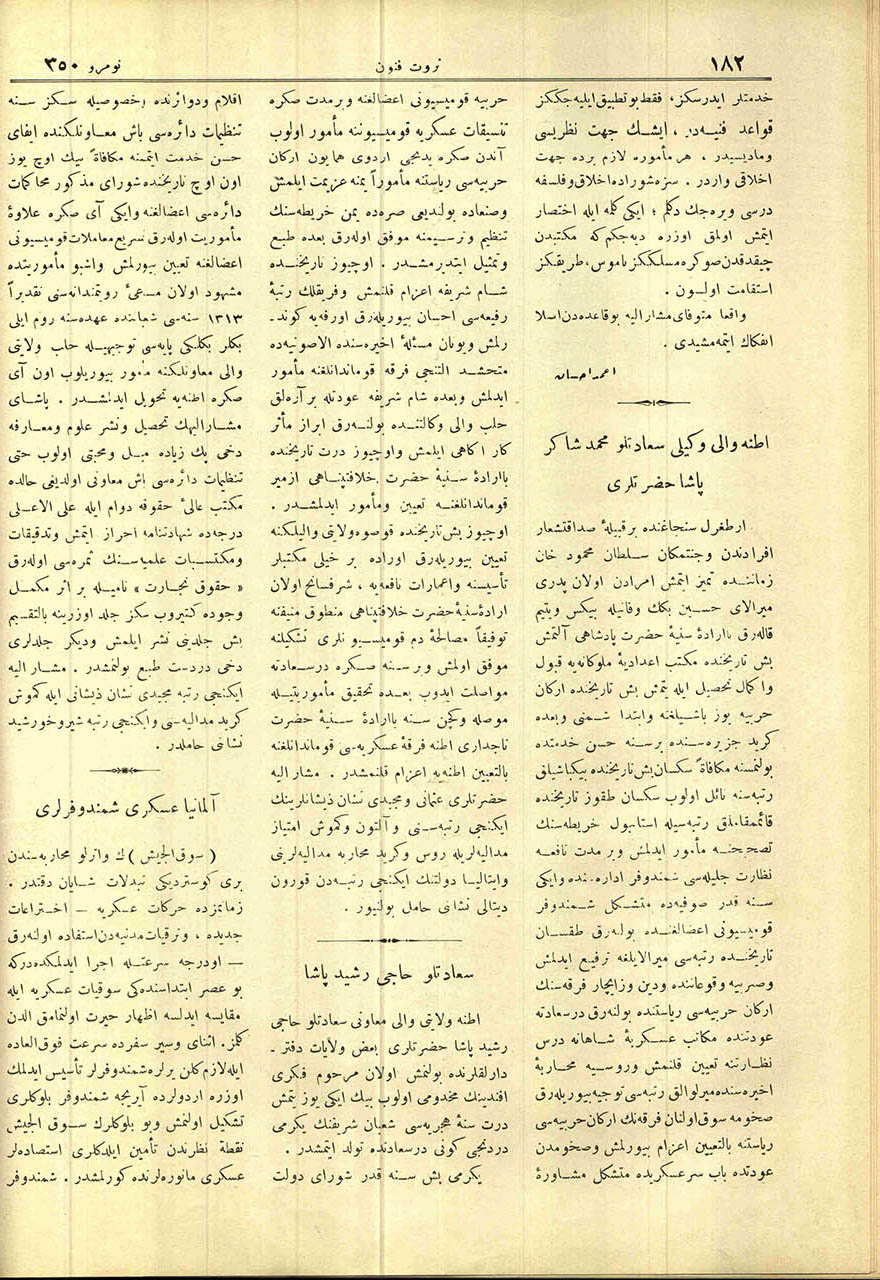 ١٨٢
ثروت فنون
نومرو ٣٥٠
خدمتلر ایدرسكز، فقط بو تطبیق ایلیه جككز
قواعد فنیه در ، ایشك جهت نظریسی
ومادیسیدر ، هر مأموره لازم برده جهت
اخلاقی واردر . سزه شوراده اخلاق و فلسفه
درسی ویره جك دكلم ؛ ایكی كلمه ایله اختصار
ایتمش اولمق اوزره دیه جكم كه مكتبدن
چیقدقدن صوكره مسلككز ناموس، طریقكز
استقامت اولسون .
واقعا متوفای مشار الیه بو قاعده دن اصلا
انفكاك ایتمه مشیدی .
احمد احسان
اطنه والی وكیلی سعادتلو محمد شاكر
پاشا حضرتلری
ارطغرل سنجاغنده بر قبیلهٔ صداقتشعار
افرادندن وجنتمكان سلطان محمود خان
زماننده تمیز ایتمش امرادن اولان پدری
میرالای حسین بكك وفاتیله بیكس ویتیم
قاله رق باارادهٔ سنیهٔ حضرت پادشاهی آلتمش
بش تاریخنده مكتب اعدادیهٔ ملوكانه یه قبول
واكمال تحصیل ایله یتمش بش تاریخنده اركان
حربیه یوز باشیلغنه وابتدا شمنی وبعده
كرید جزیره سنده بر سنه حسن خدمتده
بولنمسنه مكافاةً سكسان بش تاریخنده بیكباشیلق
رتبه سنه نائل اولوب سكسان طقوز تاریخنده
قائممقاملق رتبه سیله استانبول خریطه سنك
تصحیحنه مأمور ایدلمش وبر مدت نافعه
نظارت جلیله سی شمندوفر اداره سنده وایكی
سنه قدر صوفیه ده متشكل شمندوفر
قومیسیونی اعضالغنده بوله رق طقسان
تاریخنده رتبه سی میرالایلغه ترفیع ایدلمش
وصربیه وقوعاتنده ودین وزایچار فرقه سنك
اركان حربیه سی ریاستنده بولنه رق درسعادته
عودتنده مكاتب عسكریهٔ شاهانه درس
نظارتنه تعیین قلنمش وروسیه محاربهٔ
اخیره سنده میرلوالق رتبه سی توجیه بیوریله رق
صخومه سوق اولنان فرقه نك اركان حربیه سی
ریاستنه بالتعیین اعزام بیورلمش وصخومدن
عودتده باب سرعسكریده متشكل مشاورهٔ
حربیه قومیسیونی اعضالغنه وبر مدت صكره
تنسیقات عسكریه قومیسیوننه مأمور اولوب
آندن صكره یدنجی اردوی همایون اركان
حربیه سی ریاستنه مأموراً یمنه عزیمت ایلمش
وصنعاده بولندیغی صره ده یمن خریطه سنك
تنظیم وترسیمنه موفق اوله رق بعده طبع
وتمثیل ایتدیرمشدر . اوچیوز تاریخنده
شام شریفه اعزام قلنمش وفریقلك رتبهٔ
رفیعه سی احسان بیوریله رق اورفه یه كوند-
رلمش ویونان مسئلهٔ اخیره سنده الاصونیه ده
متحشد التنجی فرقه قوماندانلغنه مأمور
ایدلمش وبعده شام شریفه عودتله بر آره لق
حلب والی وكالتنده بولنه رق ابراز مأثر
كار آكاهی ایلمش واوچیوز درت تاریخنده
باارادهٔ سنیهٔ حضرت خلافتپناهی ازمیر
قوماندانلغنه تعیین ومأمور ایدلمشدر .
اوچیوز بش تاریخنده قوصوه ولایتی والیلكنه
تعیین بیوریله رق اوراده بر خیلی مكتبلر
تأسیسنه واعمارات نافعه یه ، شرفسانح اولان
ارادهٔ سنیهٔ حضرت خلافتپناهی منطوق منیفنه
توفیقاً مصالحهٔ دم قومیسیونلری تشكیلنه
موفق اولمش وبر سنه صكره درسعادته
مواصلت ایدوب بعده تحقیق مأموریتیله
موصله وكچن سنه باارادهٔ سنیهٔ حضرت
تاجداری اطنه فرقهٔ عسكریه سی قوماندانلغنه
بالتعیین اطنه یه اعزام قلنمشدر . مشار الیه
حضرتلری عثمانی ومجیدی نشان ذیشانلرینك
ایكنجی رتبه سنی وآلتون وكموش امتیاز
مدالیه لریله روس وكرید محاربه مدالیه لرینی
وایتالیا دولتنك ایكنجی رتبه دن قورون
دیتالی نشانی حامل بولنیور .
سعادتلو حاجی رشید پاشا
اطنه ولایتی والی معاونی سعادتلو حاجی
رشید پاشا حضرتلری بعض ولایات دفتر-
دارلقلرنده بولنمش اولان مرحوم فكری
افندینك مخدومی اولوب بیك ایكی یوز یتمش
درت سنهٔ هجریه سی شعبان شریفنك یكرمی
دردنجی كونی درسعادتده تولد ایتمشدر .
یكرمی بش سنه قدر شورای دولت
اقلام ودوائرنده وخصوصیله سكز سنه
تنظیمات دائره سی باش معاونلكنده ایفای
حسن خدمت ایتمنه مكافاةً بیك اوچ یوز
اون اوچ تاریخنده شورای مذكور محاكمات
دائره سی اعضالغنه وایكی آی صكره علاوهٔ
مأموریت اوله رق تسریع معاملات قومیسیونی
اعضالغنه تعیین بیورلمش واشبو مأموریتده
مشهود اولان مساعیٔ رویتمندانه سنی تقدیراً
١٣١٣ سنه سی شعباننده عهده سنه روم ایلی
بكلر بكلكی پایه سی توجیهیله حلب ولایتی
والی معاونلكنه مأمور بیوریلوب اون آی
صكره اطنه یه تحویل ایدلمشدر . پاشای
مشار الیهك تحصیل ونشر علوم ومعارفه
دخی پك زیاده میل ومحبتی اولوب حتی
تنظیمات دائره سی باش معاونی اولدیغی حالده
مكتب عالیٔ حقوقه دوام ایله علی الاعلی
درجه ده شهادتنامه احراز ایتمش وتدقیقات
ومكتسبات علمیه سنك ثمره سی اوله رق
« حقوق تجارت » نامیله بر اثر مكمل
وجوده كتیروب سكز جلد اوزرینه بالتقسیم
بش جلدینی نشر ایلمش ودیكر جلدلری
دخی دردست طبع بولنمشدر . مشار الیه
ایكنجی رتبه مجیدی نشان ذیشانی ایله كموش
كرید مدالیه سی وایكنجی رتبه شیر وخورشید
نشانی حاملدر .
آلمانیا عسكری شمندوفرلری
( سوق الجیش ) ك واترلو محاربه سندن
بری كوستردیكی تبدلات شایان دقتدر .
زمانمزده حركات عسكریه — اختراعات
جدیده ، وترقیات مدنیه دن استفاده اولنه رق
— اودرجه سرعتله اجرا ایدلمكده دركه
بو عصر ابتداسنده كی سوقیات عسكریه ایله
مقایسه ایدلسه اظهار حیرت اولنمامق الدن
كلمز. اثنای وسیر سفرده سرعت فوق العاده
ایله لازم كلن یرلره شمندوفرلر تأسیس ایدلمك
اوزره اردولرده آیریجه شمندوفر بلوكلری
تشكیل اولنمش وبو بلوكلرك سوق الجیش
نقطهٔ نظرندن تأمین ایلدكلری استفاده لر
عسكری مانوره لرنده كورلمشدر . شمندوفر